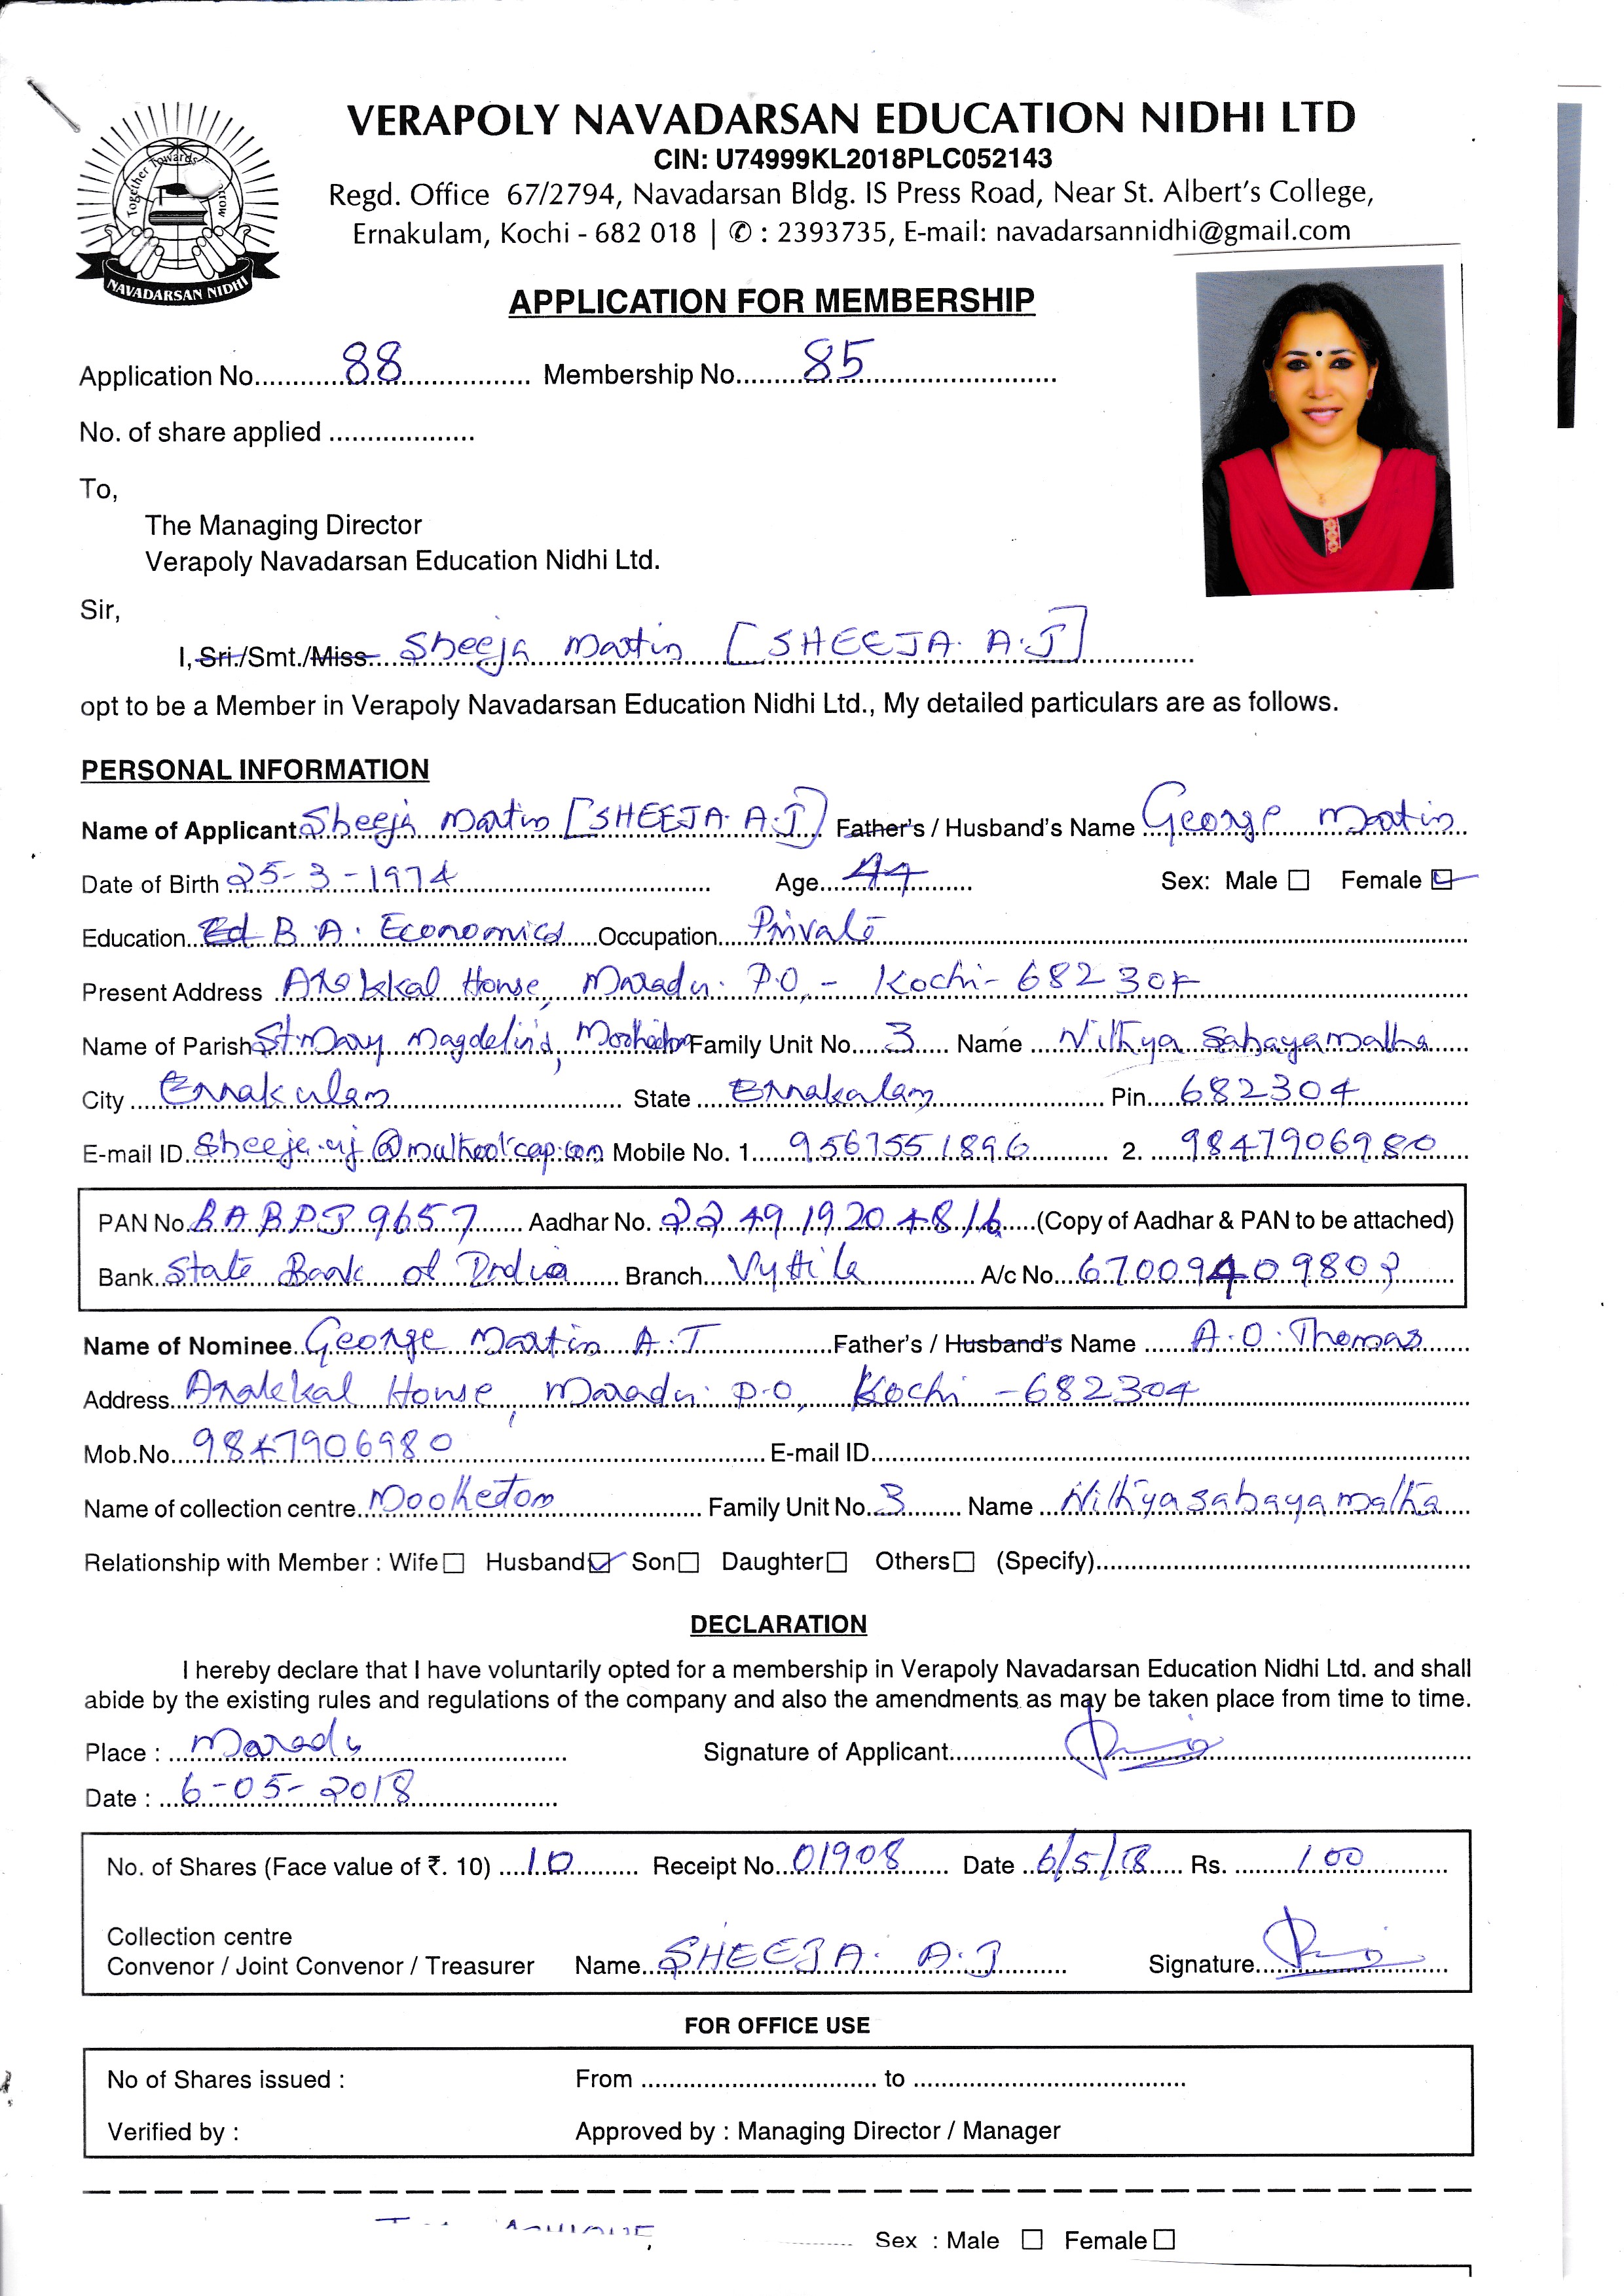 VERAPOLY NAVADARSAN EDUCATION NIDHI LTD
CIN: U74999KL2018PLC052143
Regd. Office 67/2794, Navadarsan Bldg. IS Press Road, Near St. Albert's College,
Ernakulam, Kochi - 682 018 | ✆ : 2393735, E-mail: navadarsannidhi@gmail.com
Together Towards
NAVADARSAN NIDHI
APPLICATION FOR MEMBERSHIP
Application No. 88 Membership No. 85
No. of share applied
To,
The Managing Director
Verapoly Navadarsan Education Nidhi Ltd.
Sir,
I, Sri./Smt./Miss Sheeja Martin [SHEEJA. A.J]
opt to be a Member in Verapoly Navadarsan Education Nidhi Ltd., My detailed particulars are as follows.
PERSONAL INFORMATION
Name of Applicant Sheeja Martin [SHEEJA. A.J] Father's / Husband's Name George Martin
Date of Birth 25-3-1974 Age 44 Sex: Male ☐ Female ☑
Education B.A. Economics Occupation Private
Present Address Arakkal House, Maradu. P.O, - Kochi - 682304
Name of Parish St. Mary Magdelin's, Family Unit No. 3 Name Nithya Sahayamatha
City Ernakulam State Ernakulam Pin 682304
E-mail ID Mobile No. 1. 9567551896 2. 9847906980
PAN No. Aadhar No. 2249 1920 4816 (Copy of Aadhar & PAN to be attached)
Bank State Bank of India Branch Vyttila A/c No.
Name of Nominee George Martin A.T Father's / Husband's Name A.O. Thomas
Address Arakkal House, Maradu. P.O, Kochi - 682304
Mob.No. 9847906980 E-mail ID
Name of collection centre Moothedom Family Unit No. 3 Name Nithyasahayamatha
Relationship with Member : Wife ☐ Husband ☑ Son ☐ Daughter ☐ Others ☐ (Specify)
DECLARATION
I hereby declare that I have voluntarily opted for a membership in Verapoly Navadarsan Education Nidhi Ltd. and shall
abide by the existing rules and regulations of the company and also the amendments as may be taken place from time to time.
Place : Maradu Signature of Applicant
Date : 6-05-2018
No. of Shares (Face value of ₹. 10) 10 Receipt No. 01908 Date 6/5/18 Rs. 100
Collection centre
Convenor / Joint Convenor / Treasurer Name SHEEJA. A.J Signature
FOR OFFICE USE
No of Shares issued : From to
Verified by : Approved by : Managing Director / Manager
Sex : Male ☐ Female ☐